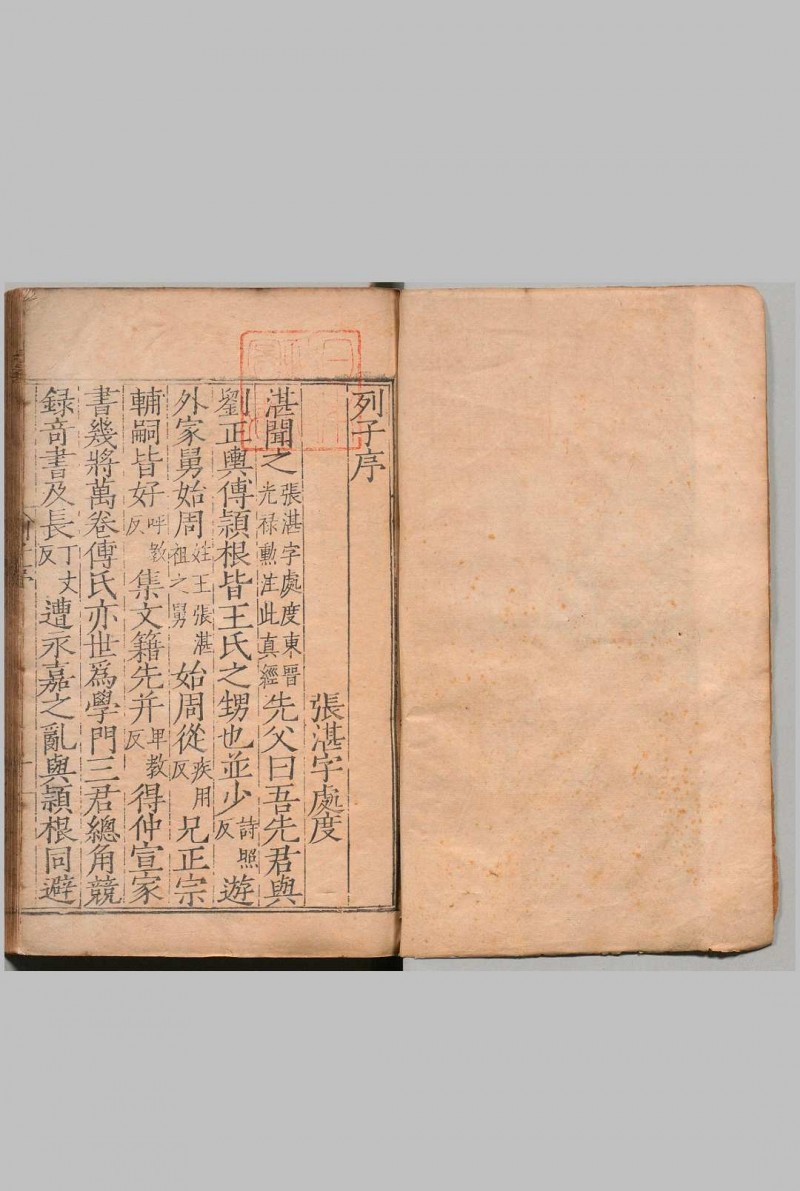 列子序
張湛字處度
湛聞之張湛字處度東晉光禄勳注此真經先父曰吾先君與
劉正輿傅頴根皆王氏之甥也並少詩照反遊
外家舅始周姓王張湛祖之舅始周從疾用反兄正宗
輔嗣皆好呼教反集文籍先并卑教反得仲宣家
書幾將萬卷傅氏亦世爲學門三君總角競
録竒書及長丁丈反遭永嘉之亂與頴根同避